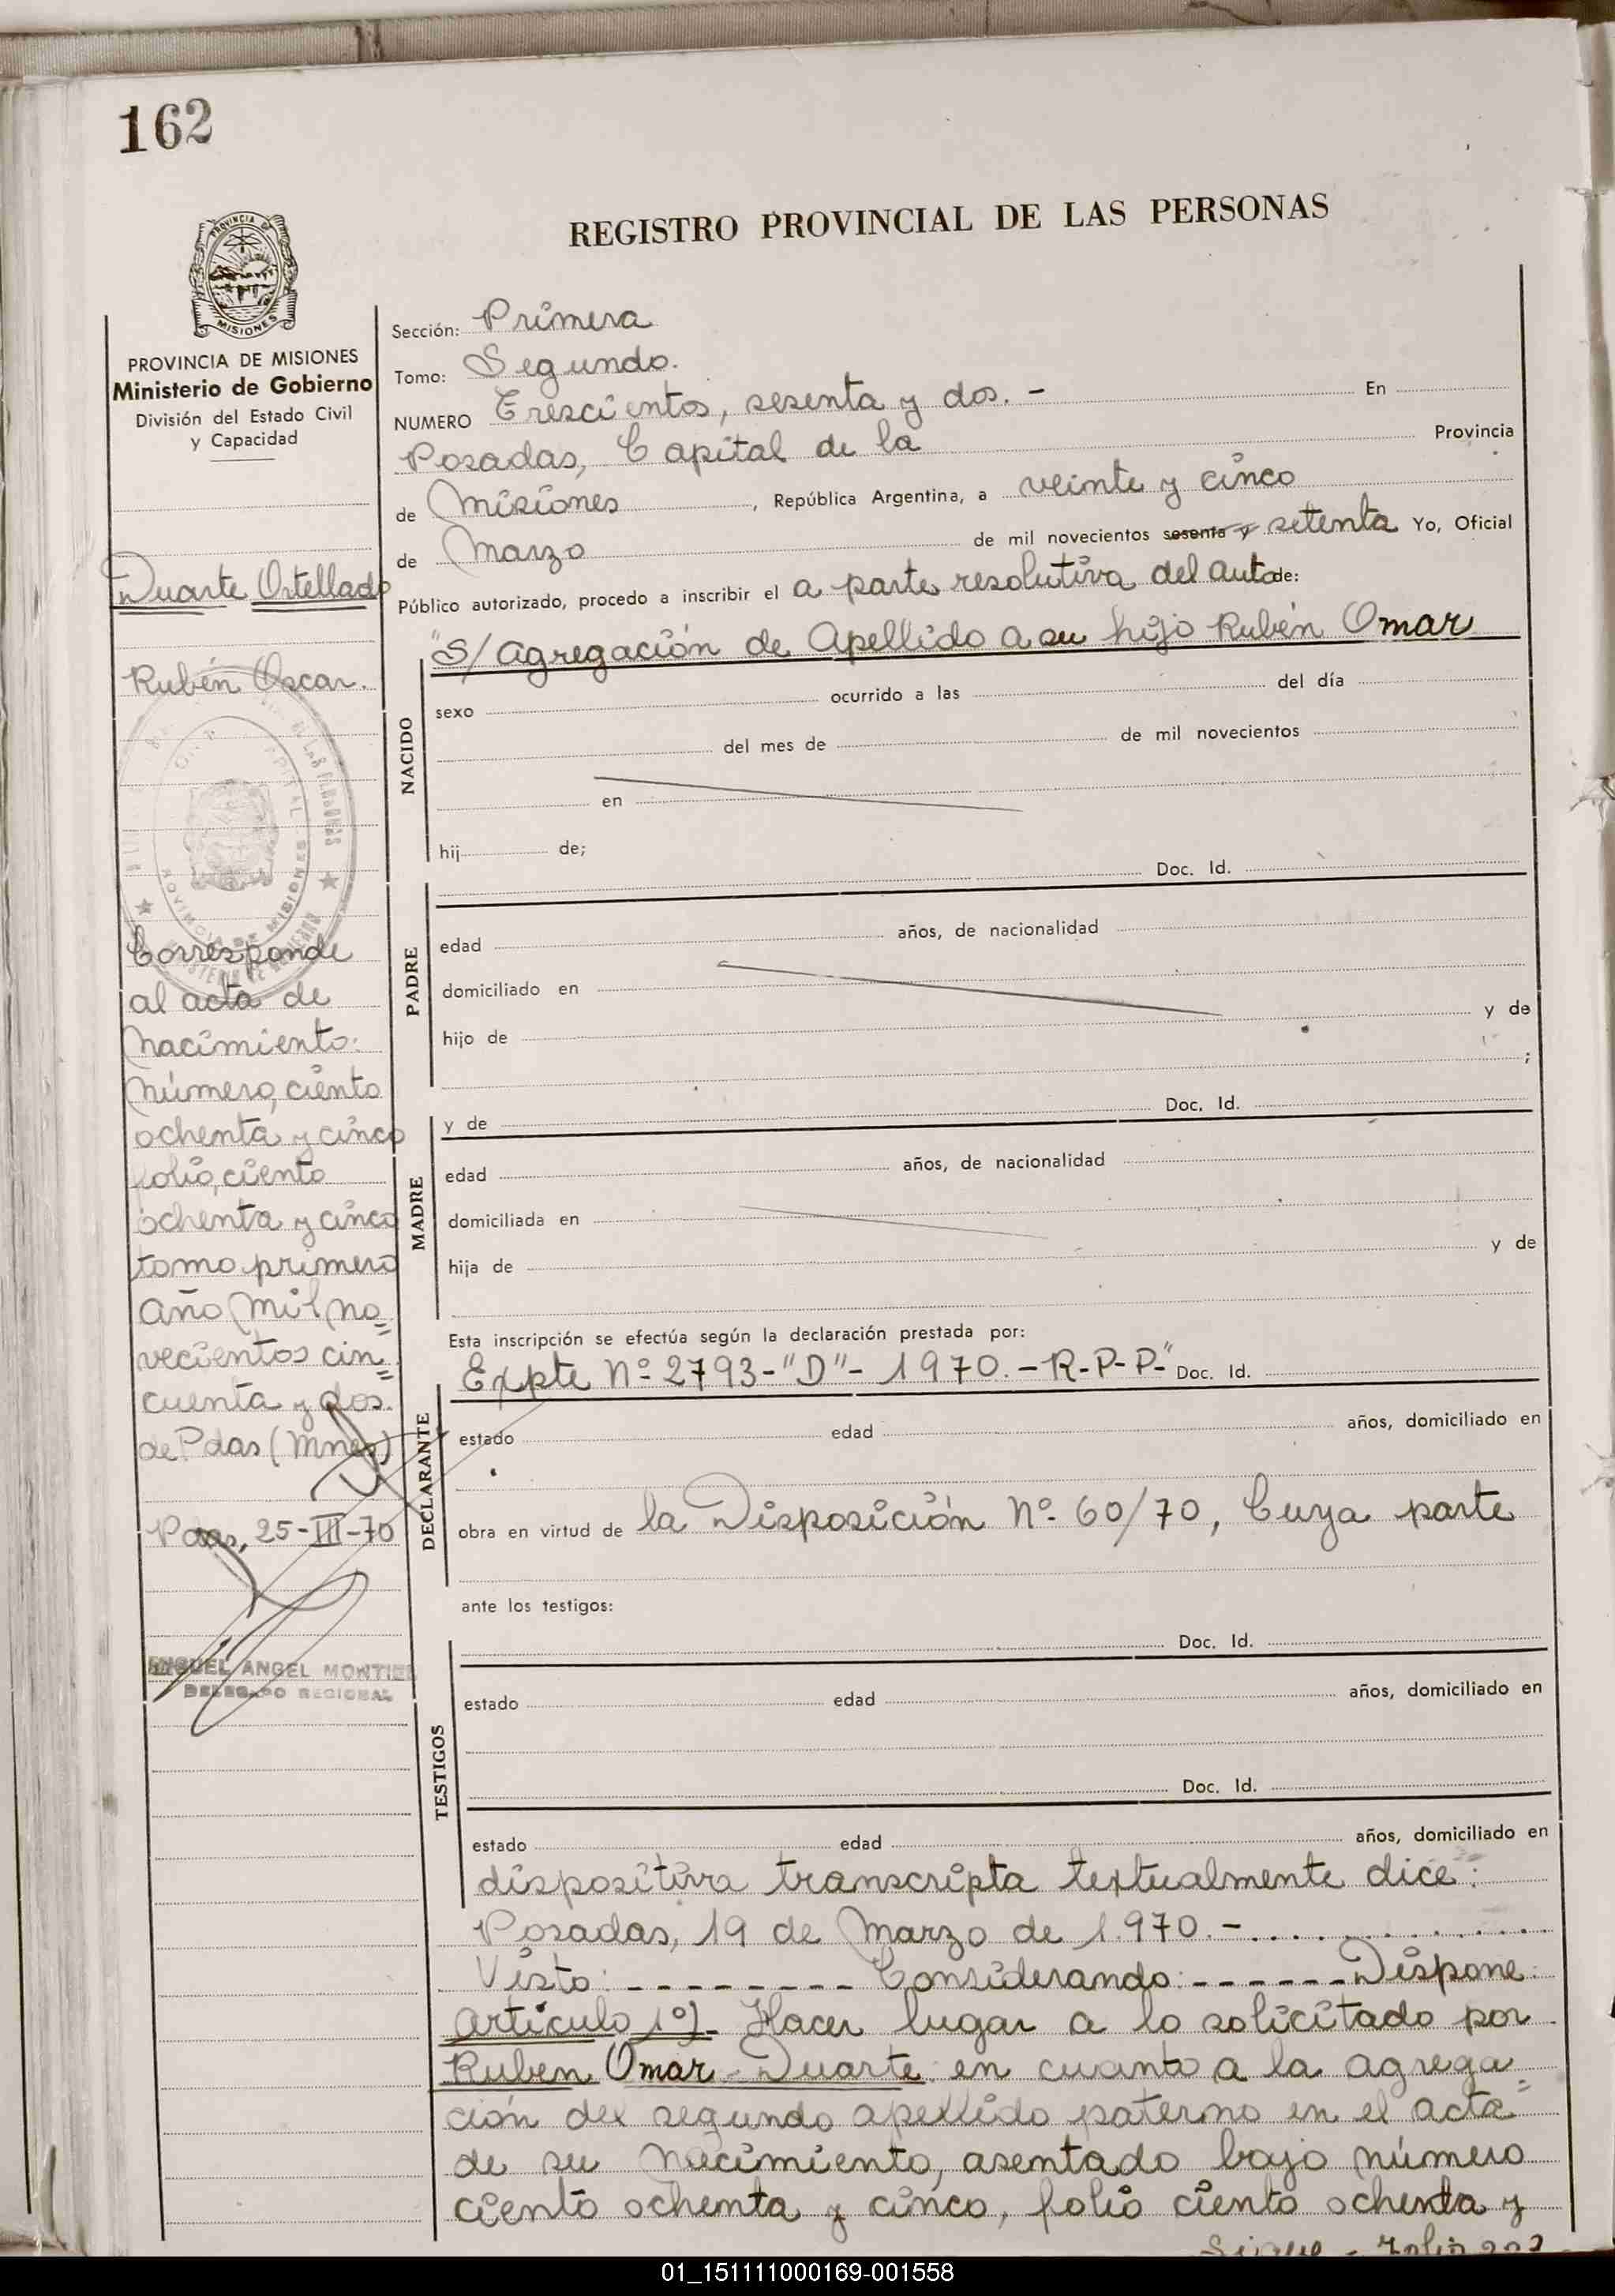 162
REGISTRO PROVINCIAL DE LAS PERSONAS
PROVINCIA DE
MISIONES
PROVINCIA DE MISIONES
Ministerio de Gobierno
División del Estado Civil
y Capacidad
Duarte Ortellado
Rubén Oscar.
Corresponde
al acta de
Nacimiento:
Número, ciento
ochenta y cinco
folio, ciento
ochenta y cinco
tomo primero
Año Mil no=
vecientos cin=
cuenta y dos.
de Pdas (Mnes)
Pdas, 25-III-70
MIGUEL ANGEL MONTIEL
DELEGADO REGIONAL
Sección: Primera
Tomo: Segundo.
NUMERO Trescientos, sesenta y dos. - En
Posadas, Capital de la Provincia
de Misiones, República Argentina, a veinte y cinco
de Marzo de mil novecientos sesenta y setenta Yo, Oficial
Público autorizado, procedo a inscribir el a parte resolutiva del auto de:
"S/ Agregación de Apellido a su hijo Rubén Omar
NACIDO
sexo ocurrido a las del día
del mes de de mil novecientos
en
hij de;
Doc. Id.
PADRE
edad años, de nacionalidad
domiciliado en
hijo de y de
;
y de Doc. Id.
MADRE
edad años, de nacionalidad
domiciliada en
hija de y de
Esta inscripción se efectúa según la declaración prestada por:
Expte Nº 2793-"D"- 1970.-R-P-P-" Doc. Id.
DECLARANTE
estado edad años, domiciliado en
obra en virtud de la Disposición Nº 60/70, Cuya parte
ante los testigos:
Doc. Id.
TESTIGOS
estado edad años, domiciliado en
Doc. Id.
estado edad años, domiciliado en
dispositiva transcripta textualmente dice:
Posadas, 19 de Marzo de 1.970.- . . . . . . . . . . . . .
Visto: - - - - - - - - Considerando: - - - - - - Dispone:
Artículo 1º)- Hacer lugar a lo solicitado por
Ruben Omar Duarte en cuanto a la agrega=
ción del segundo apellido paterno en el acta
de su Nacimiento, asentado bajo número
ciento ochenta y cinco, folio ciento ochenta y
Sigue - Folio
01_151111000169-001558